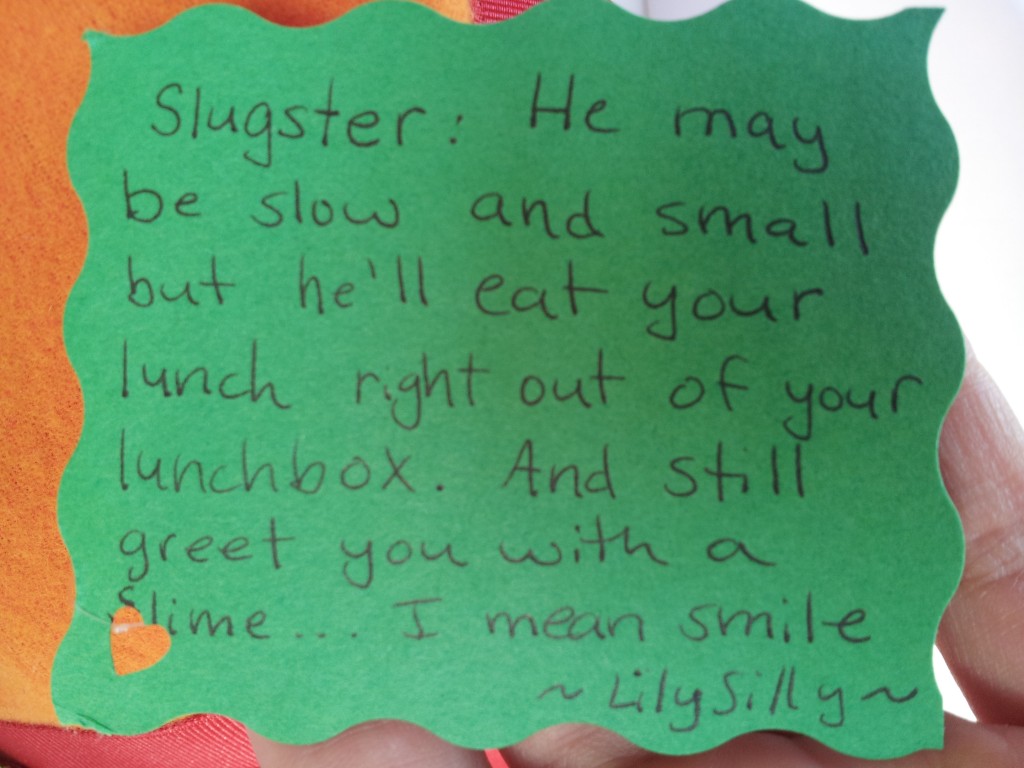 Slugster: He may
be slow and small
but he'll eat your
lunch right out of your
lunchbox. And still
greet you with a
Slime... I mean smile
~LilySilly~